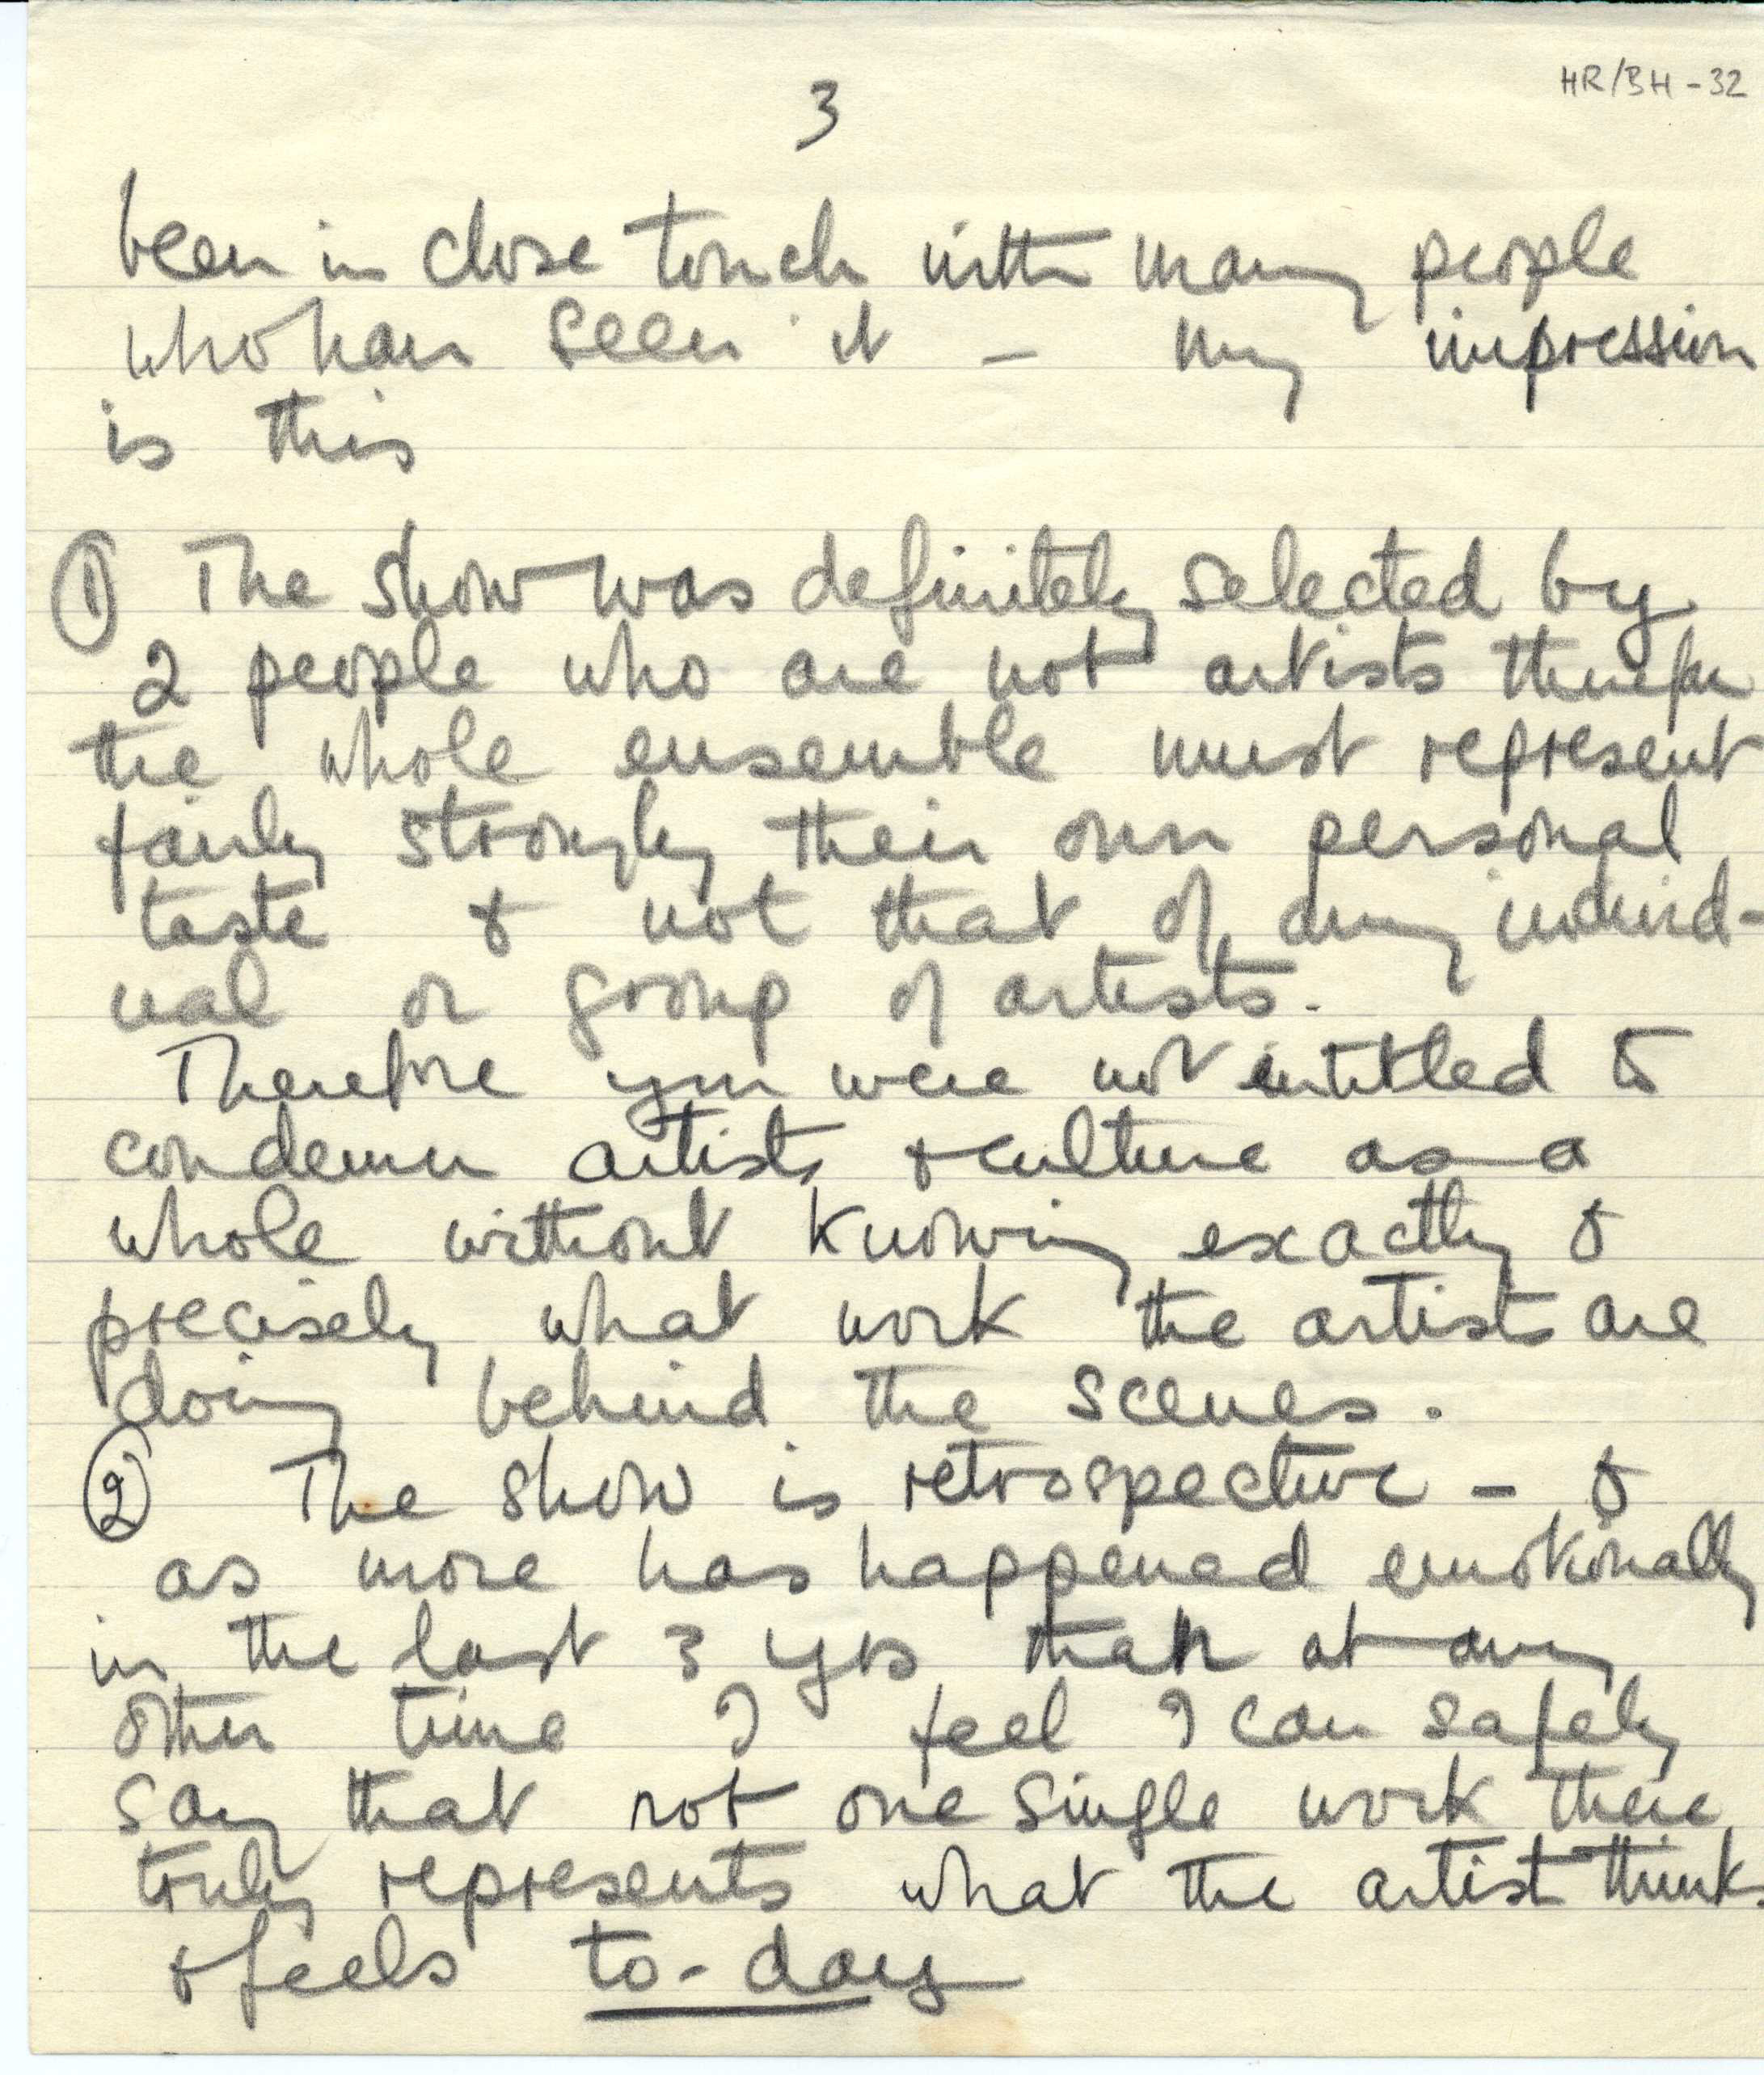 HR/BH - 32
3
been in close touch with many people
who have seen it – my impression
is this
① The show was definitely selected by
2 people who are not artists therefore
the whole ensemble must represent
fairly strongly their own personal
taste & not that of any individ-
ual or group of artists.
Therefore you were not intitled to
condemn artists & culture as a
whole without knowing exactly &
precisely what work the artists are
doing behind the scenes.
② The show is retrospective – &
as more has happened emotionally
in the last 3 yrs than at any
other time I feel I can safely
say that not one single work there
truly represents what the artist thinks
& feels to-day